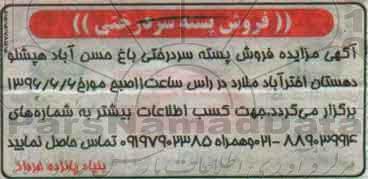 (( فروش پسته سردرختی ))
آگهی مزایده فروش پسته سردرختی باغ حسن آباد میشلو
دهستان اخترآباد ملارد در راس ساعت۱۱صبح مورخ ۱۳۹۶/۶/۶
برگزار می‌گردد.جهت کسب اطلاعات بیشتر به شماره‌های
۸۸۹۰۳۹۹۴-۰۲۱وهمراه ۰۹۱۹۷۹۰۲۳۸۵ تماس حاصل نمایید
بنیاد پانزده خرداد
ParsNamadData